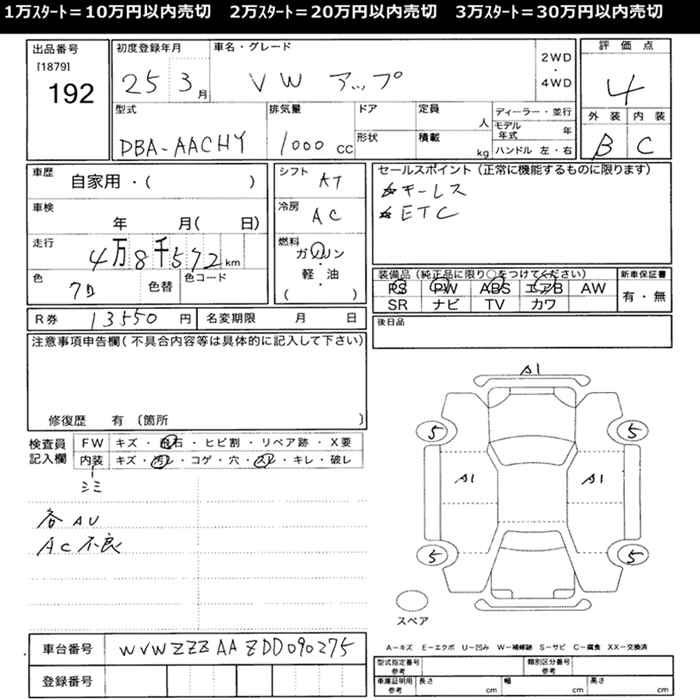 1万スタート＝10万円以内売切　2万スタート＝20万円以内売切　3万スタート＝30万円以内売切
出品番号
[1879]
192
初度登録年月
25 3月
車名・グレード
VW アップ
2WD
・
4WD
評価点
4
外装 内装
B C
型式
DBA-AACHY
排気量
1000 CC
ドア
形状
定員
人
積載
kg
ディーラー・並行
モデル年式 年
ハンドル 左・右
車歴
自家用・( )
車検
年 月( 日)
走行
4万8千572km
色
クロ
色替
色コード
シフト
AT
冷房
AC
燃料
ガソリン
・
軽・油
( )
セールスポイント（正常に機能するものに限ります）
☆キーレス
☆ETC
装備品（純正品に限り○をつけてください）
PS PW ABS エアB AW
SR ナビ TV カワ
新車保証書
有・無
R券 13550 円
名変期限 月 日
後日品
注意事項申告欄(不具合内容等は具体的に記入して下さい)
修復歴 有〔箇所 〕
検査員記入欄
FW キズ・飛石・ヒビ割・リペア跡・X要
内装 キズ・汚レ・コゲ・穴・スレ・キレ・破レ
シミ
各AU
AC不良
A1
5 5
A1 A1
5 5
スペア
A－キズ E－エクボ U－凹み W－補修跡 S－サビ C－腐食 XX－交換済
車台番号 WVWZZZAAZDD090275
登録番号
型式指定番号参考
類別区分番号参考
車庫証明用参考 長さ cm 幅 cm 高さ cm